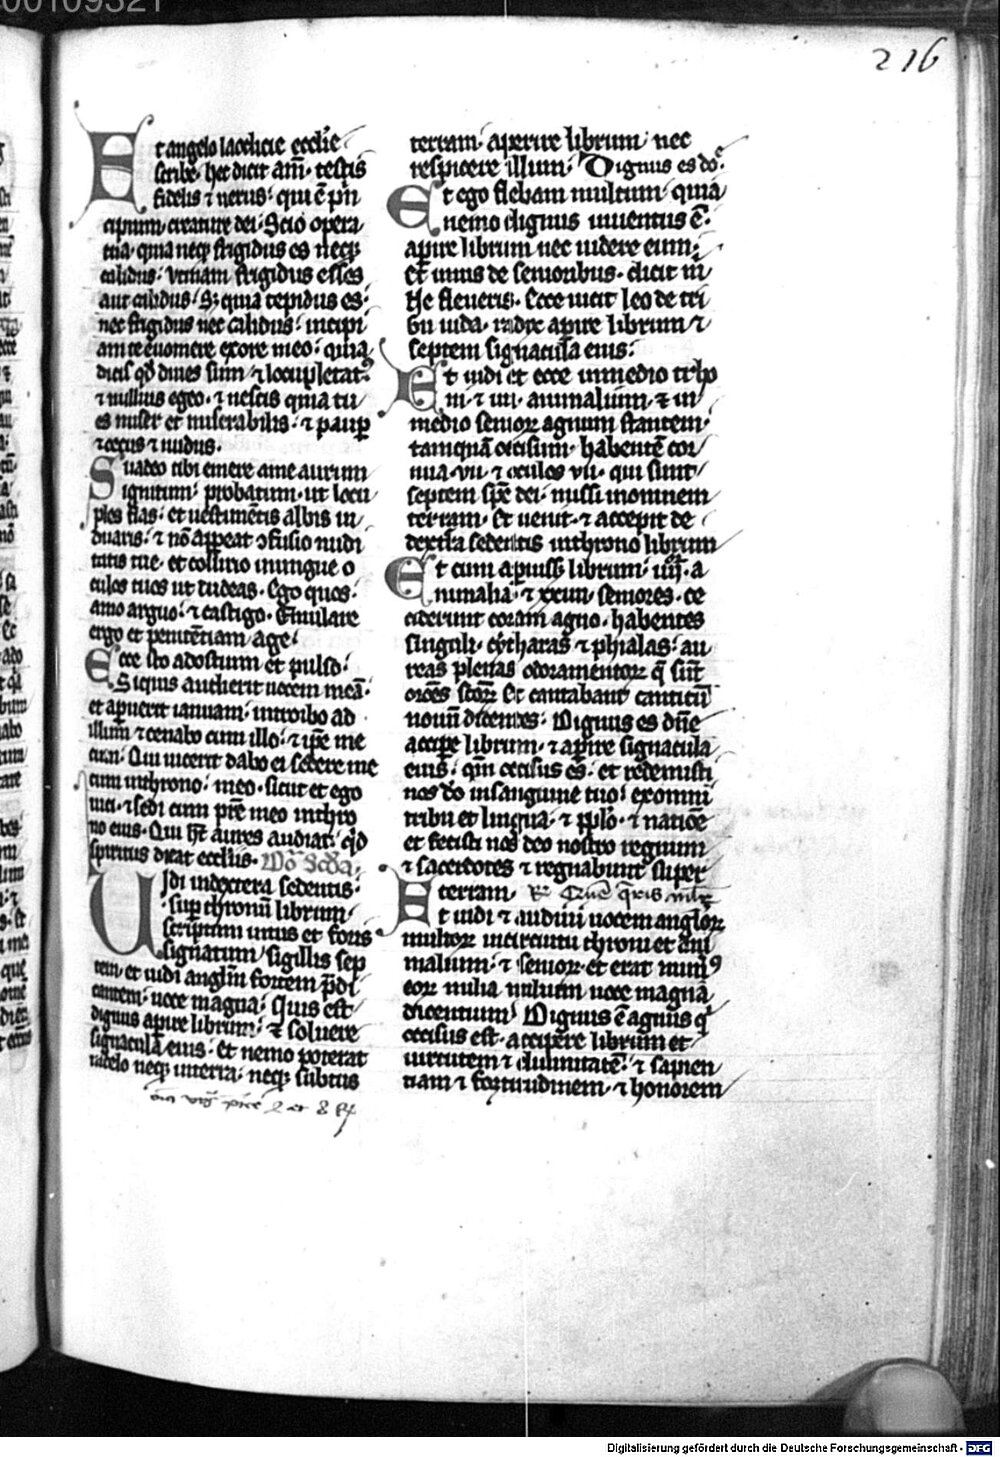 216
Et angelo laodicie ecclīe
scribe. hec dicit am̄. testis
fidelis ⁊ uerus. qui ē pͥn
cipium creature dei. Scio opera
tua. quia neqꝫ frigidus es neqꝫ
calidus. Vtinam frigidus esses
aut calidus. Sꝫ quia tepidus es.
nec frigidus nec calidus. incipi
am te euomere ex ore meo. quia
dicis qđ diues sum. ⁊ locupletatꝰ
⁊ nullius egeo. ⁊ nescis quia tu
es miser et miserabilis. ⁊ paup̄
⁊ cecus ⁊ nudus.
Suadeo tibi emere a me aurum
ignitum. probatum. ut locu
ples fias. et uestimētis albis in
duaris. ⁊ nō appeat ↄfusio nudi
tatis tue. et collirio inungue o
culos tuos ut uideas. Ego quos.
amo arguo. ⁊ castigo. Emulare
ergo et penitētiam age.
Ecce sto ad ostium et pulso.
Siquis audierit uocem meā.
et apuerit ianuam. introibo ad
illum ⁊ cenabo cum illo. ⁊ ip̄e me
cum. Qui uicerit dabo ei sedere me
cum in throno. meo. sicut et ego
uici. ⁊ sedi cum pr̄e meo in thro
no eius. Qui h̄t aures audiat. qͥd
spiritus dicat eccl̄iis.
Uidi in dextera sedentis.
sup thronū librum
scriptum intus et foris
signatum sigillis sep
tem. et uidi angl̄m fortem p̄di
cantem. uoce magna. Quis est
dignus apire librum. ⁊ soluere
signacula eius. et nemo poterat
in celo neqꝫ in terra. neqꝫ subtus
terram. aperire librum. nec
respicere illum. Dignus es dō.
Et ego flebam multum. quia
nemo dignus inuentus ē.
apire librum nec uidere eum.
et unus de senioribus. dicit m̄
Ne fleueris. Ecce uicit leo de tri
bu iuda. radix apire librum ⁊
septem signacula eius.
Et uidi et ecce in medio trho
ni. ⁊ iiii. animalium. ⁊ in
medio senioꝝ agnum stantem.
tamquā occisum. habentē cor
nua. vii ⁊ oculos vii. qui sunt
septem sp̄c dei. missi in omnem
terram. Et uenit. ⁊ accepit de
dextera sedentis in throno librum
Et cum apuiss3 librum. iiij. a
nimalia. ⁊ xxiiii. seniores. ce
ciderunt coram agno. habentes
singuli. cytharas ⁊ phialas. au
reas plenas odoramentoꝝ q̄ sūt
or̄oes sc̄oꝝ Et cantabant canticū
nouū dicentes. Dignus es dn̄e
accipe librum. ⁊ apire signacula
eius. qm̄ occisus es. et redemisti
nos dō in sanguine tuo. ex omni
tribu et lingua. ⁊ pplo. ⁊ natiōe
et fecisti nos deo nostro regnum
⁊ sacerdotes ⁊ regnabunt super
terram.
Et uidi ⁊ audiui uocem angl̄oꝝ
multoꝝ in circuitu throni et ani
malium. ⁊ senioꝝ. et erat numꝰ
eoꝝ milia milium uoce magnā
dicentium. Dignus ē agnus qͥ
occisus est. accipere librum et
uirtutem ⁊ diuinitatē. ⁊ sapien
tiam ⁊ fortitudinem. ⁊ honorem
Digitalisierung gefördert durch die Deutsche Forschungsgemeinschaft - DFG